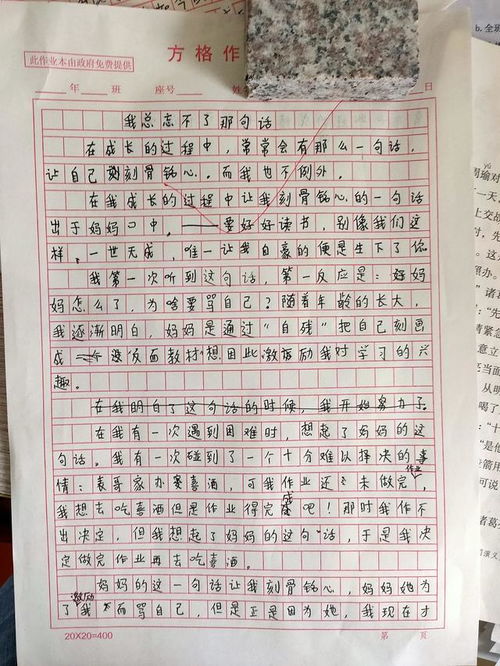 此作业本由政府免费提供
方格作
年 班 座号 日
我总忘不了那句话
在成长的过程中,常常会有那么一句话,
让自己刻骨铭心。而我也不例外。
在我成长的过程中让我刻骨铭心的一句话
出于妈妈口中。——要好好读书,别像我们这
样,一世无成,唯一让我自豪的便是生下了你
我第一次听到这句话,第一反应是:好妈
妈怎么了,为啥要骂自己?随着年龄的长大,
我逐渐明白,妈妈是通过“自残”把自己刻画
成反面教材想因此激励我对学习的兴
趣。
在我明白了这句话的时候,我开始努力了。
在我有一次遇到困难时,想起了妈妈的这
句话。我有一次碰到了一个十分难以择决的事
情:表哥家办宴喜酒,可我作业还未做完,
我想去吃喜酒但是作业得完成吧!那时我作不
出决定,但我想起了妈妈的这句话,于是我决
定做完作业再去吃喜酒。
妈妈的这一句话让我刻骨铭心,妈妈她为
了激励我而骂自己,但是正是因为她,我现在才
20X20=400 第 页
b.全班
周瑜对
一天,
上交战
时,先